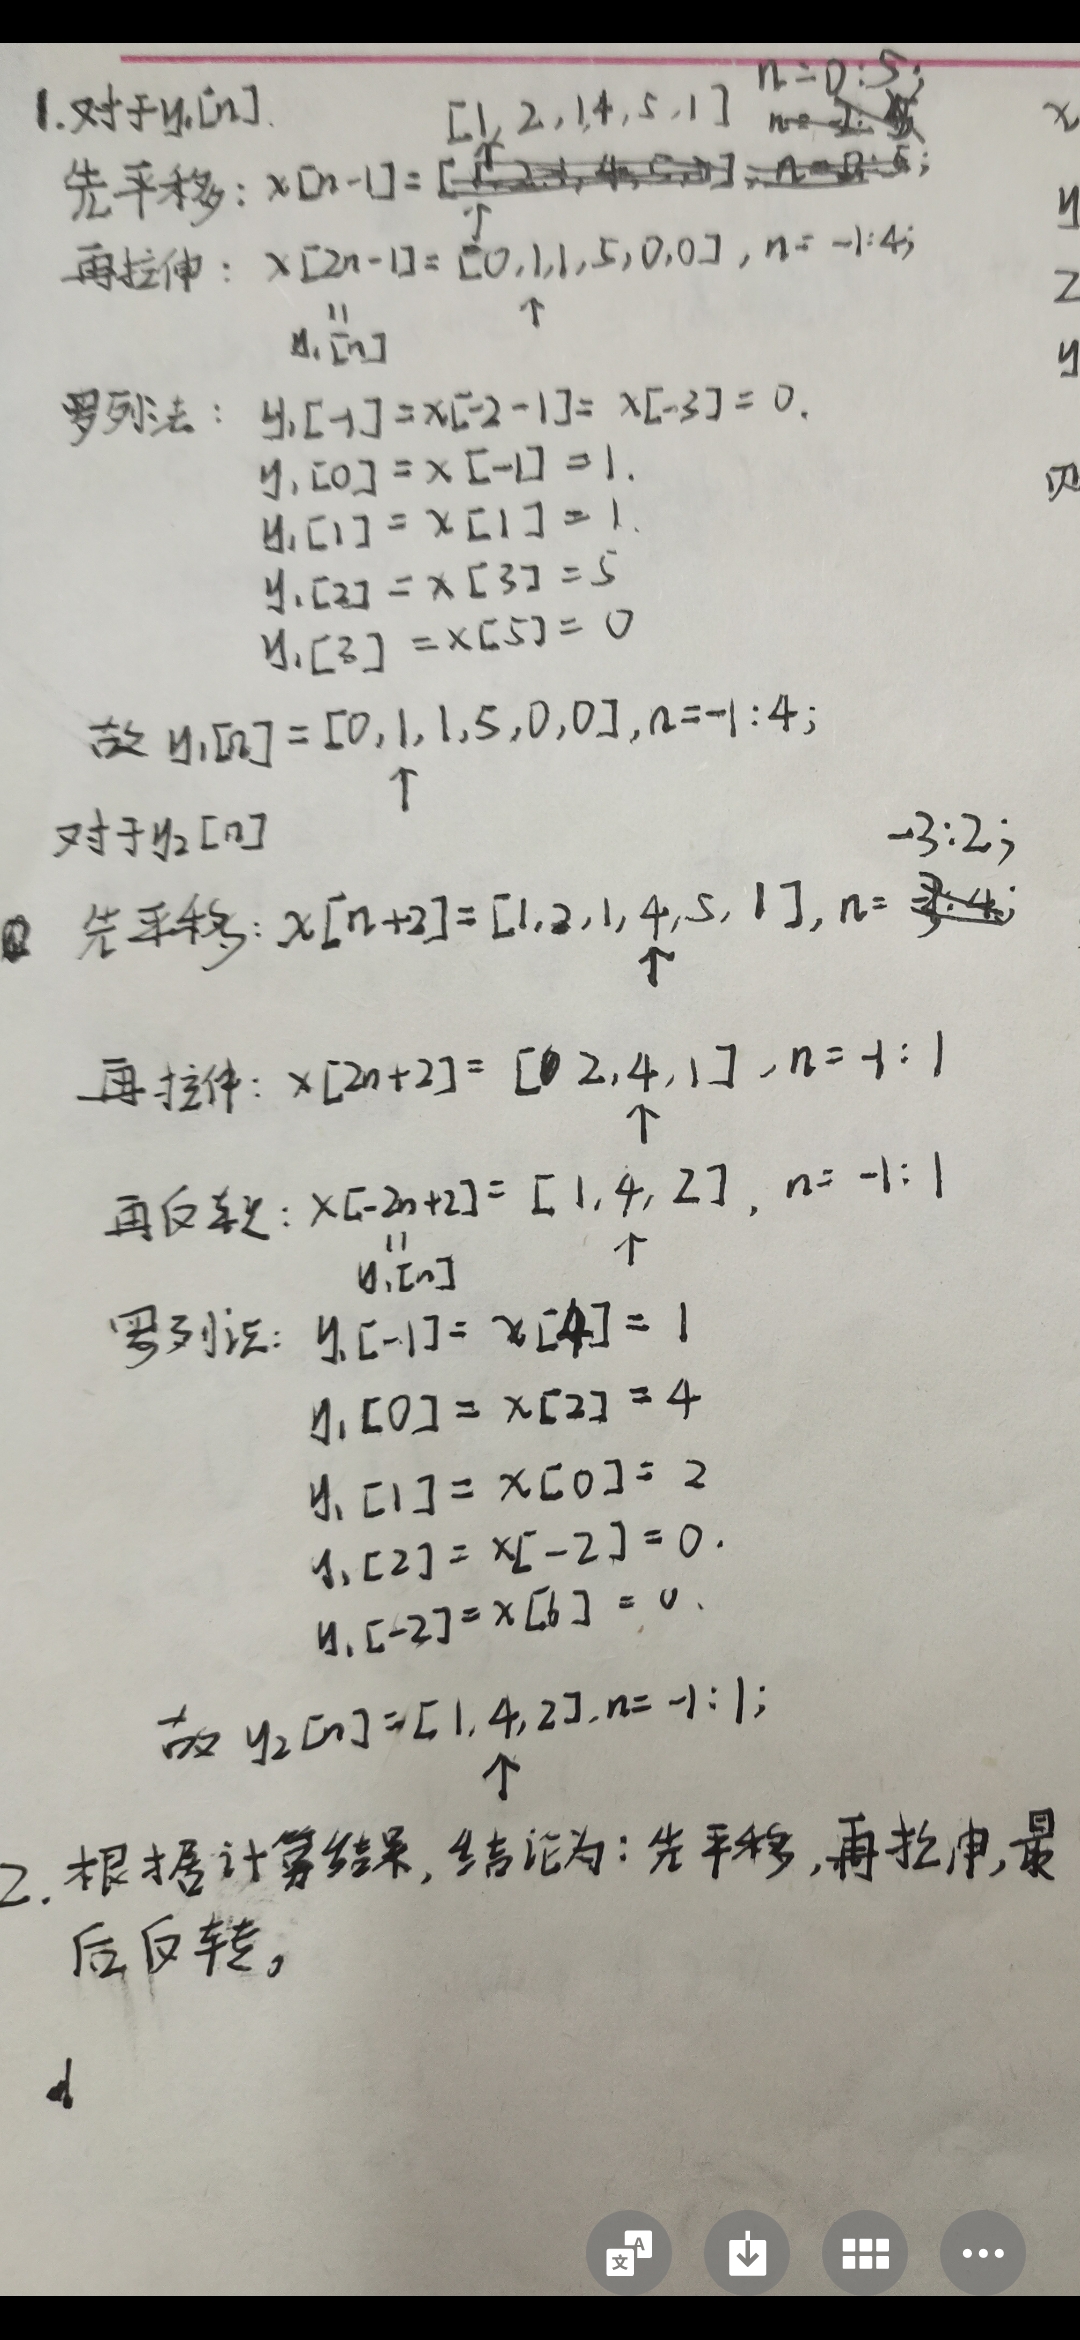 1.对于y₁[n].
[1,2,1,4,5,1] n=0:5;
先平移: x[n-1]=
再拉伸: x[2n-1]=[0,1,1,5,0,0], n=-1:4;
↑
=
y₁[n]
罗列法: y₁[-1]=x[-2-1]=x[-3]=0.
y₁[0]=x[-1]=1.
y₁[1]=x[1]=1.
y₁[2]=x[3]=5
y₁[3]=x[5]=0
故 y₁[n]=[0,1,1,5,0,0],n=-1:4;
↑
对于y₂[n]
-3:2;
先平移: x[n+2]=[1,2,1,4,5,1], n=
↑
再拉伸: x[2n+2]=[2,4,1], n=-1:1
↑
再反转: x[-2n+2]=[1,4,2], n=-1:1
↑
=
y₁[n]
罗列法: y₁[-1]=x[4]=1
y₁[0]=x[2]=4
y₁[1]=x[0]=2
y₁[2]=x[-2]=0.
y₁[-2]=x[6]=0.
故 y₂[n]=[1,4,2].n=-1:1;
↑
2.根据计算结果,结论为:先平移,再拉伸,最
后反转。
x
y
z
y